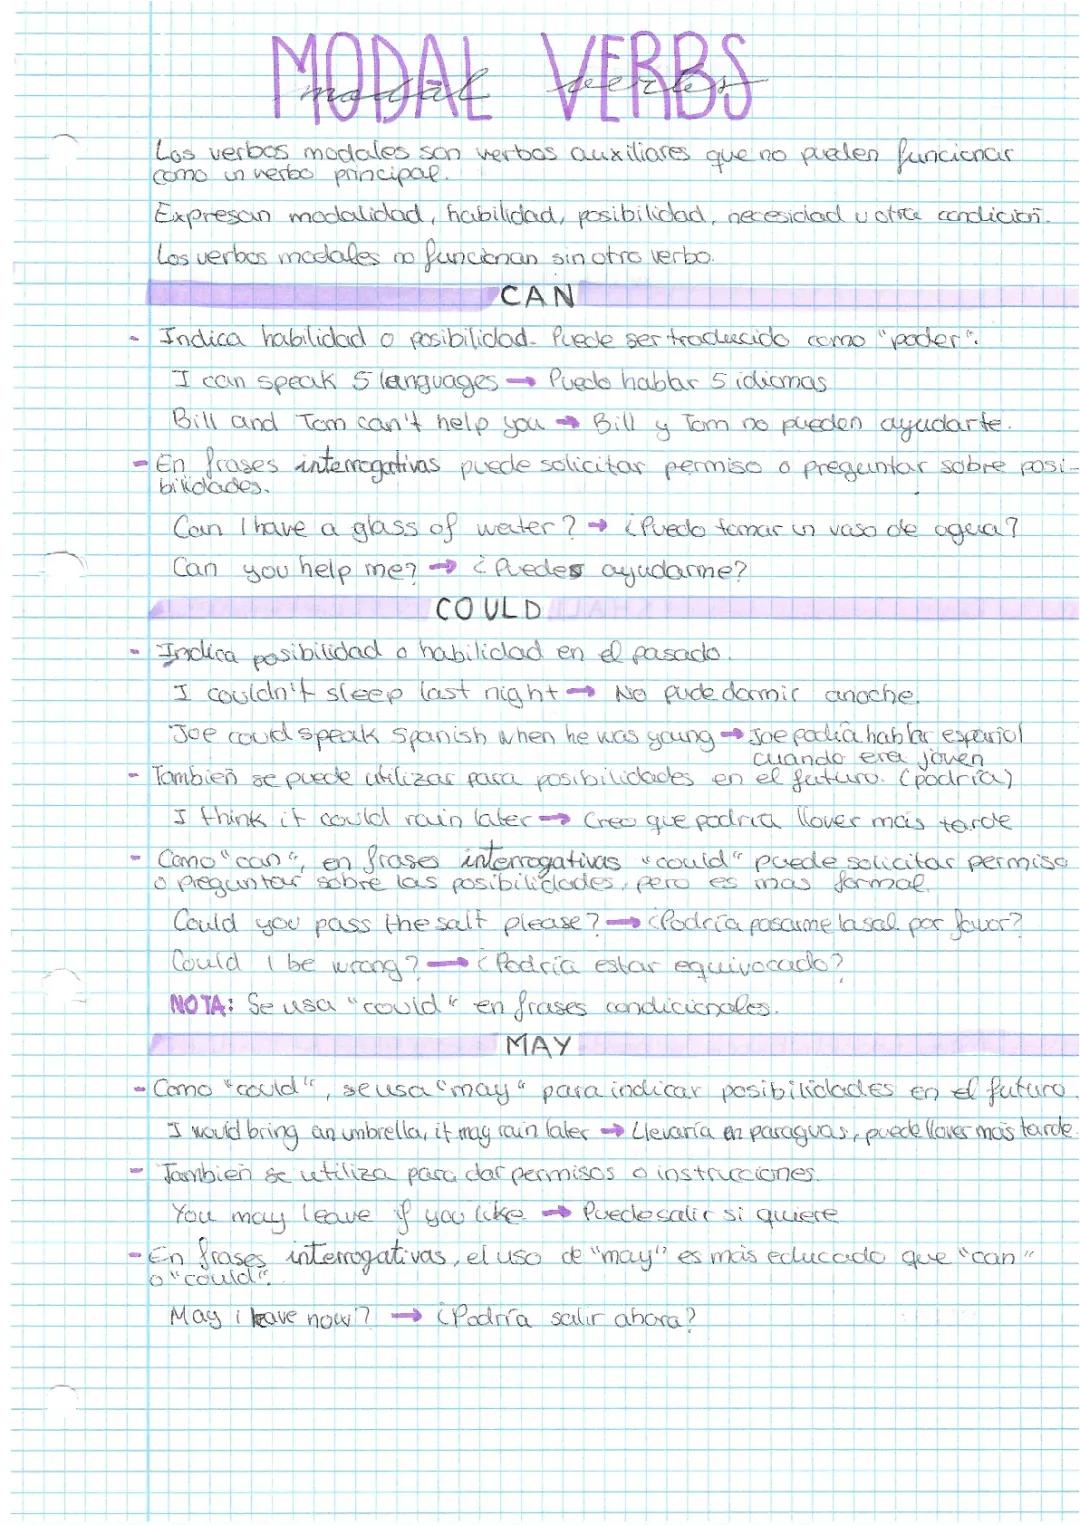 MODAL VERBS
modal verbs
Los verbos modales son verbos auxiliares que no pueden funcionar
como un verbo principal.
Expresan modalidad, habilidad, posibilidad, necesidad u otra condición.
Los verbos modales no funcionan sin otro verbo.
CAN
- Indica habilidad o posibilidad. Puede ser traducido como "poder".
I can speak 5 languages → Puedo hablar 5 idiomas
Bill and Tom can't help you → Bill y Tom no pueden ayudarte.
- En frases interrogativas puede solicitar permiso o preguntar sobre posi-
bilidades.
Can I have a glass of water? → ¿Puedo tomar un vaso de agua?
Can you help me? → ¿Puedes ayudarme?
COULD
- Indica posibilidad o habilidad en el pasado.
I couldn't sleep last night → No pude dormir anoche.
Joe could speak spanish when he was young → Joe podía hablar español
cuando era joven
- También se puede utilizar para posibilidades en el futuro. (podría)
I think it could rain later → Creo que podría llover más tarde
- Como "can", en frases interrogativas "could" puede solicitar permiso
o preguntar sobre las posibilidades, pero es mas formal.
Could you pass the salt please? → ¿Podría pasarme la sal por favor?
Could I be wrong? → ¿Podría estar equivocado?
NOTA: Se usa "could" en frases condicionales.
MAY
- Como "could", se usa "may" para indicar posibilidades en el futuro.
I would bring an umbrella, it may rain later → Llevaría en paraguas, puede llover más tarde.
- También se utiliza para dar permisos o instrucciones.
You may leave if you like → Puede salir si quiere
- En frases interrogativas, el uso de "may" es más educado que "can"
o "could".
May i leave now? → ¿Podría salir ahora?